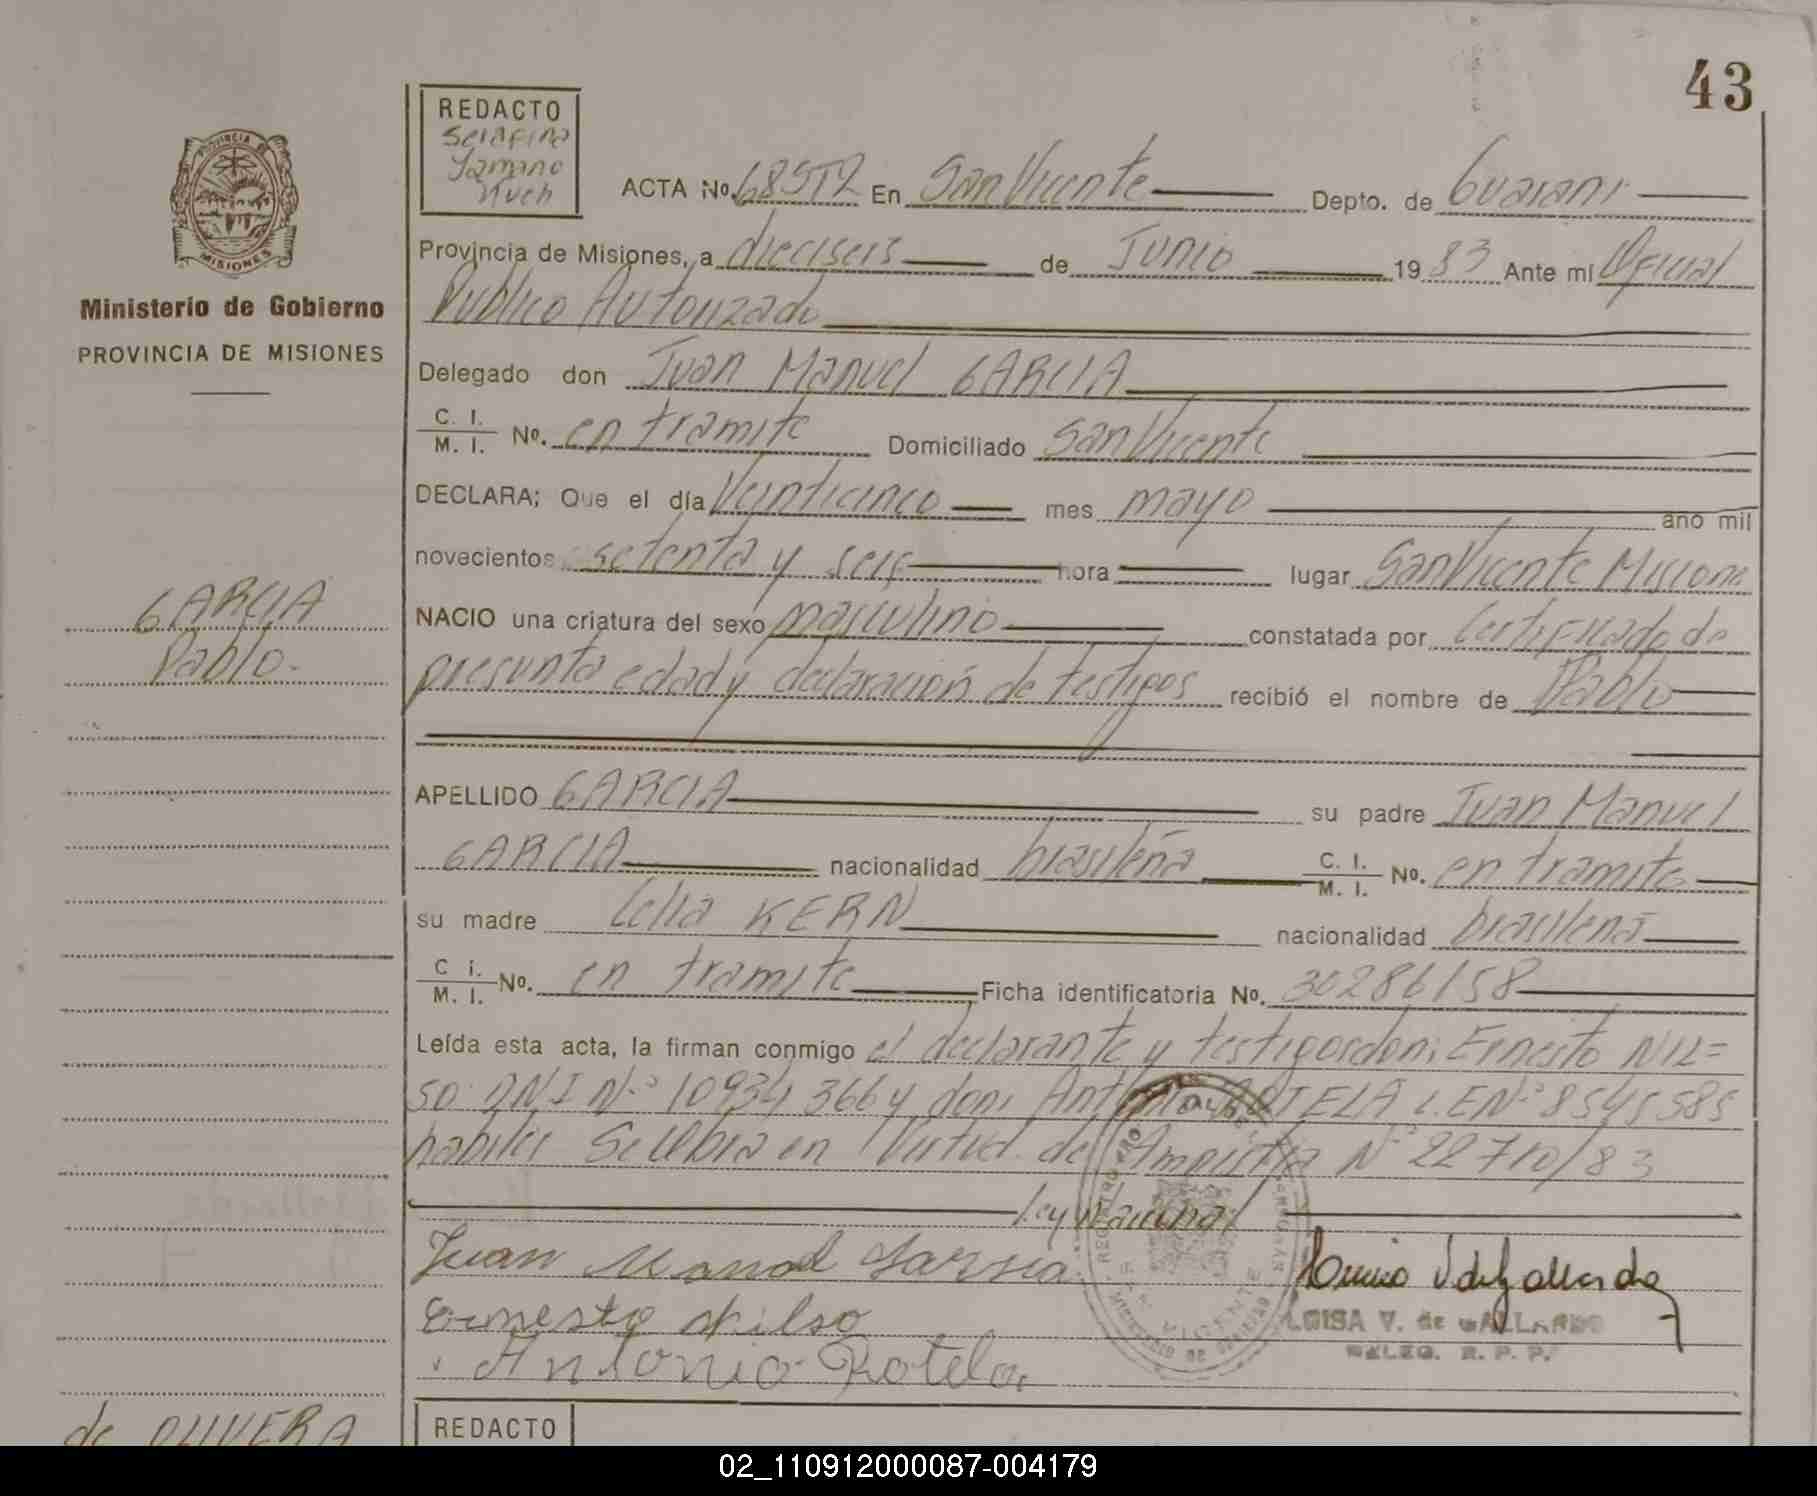 43
REDACTO
Serafina
ACTA No. 685T2 En San Vicente Depto. de Guarani
PROVINCIA DE
MISIONES
Provincia de Misiones, a dieciseis de Junio 1983 Ante mí Oficial
Publico Autorizado
Ministerio de Gobierno
PROVINCIA DE MISIONES
Delegado don Juan Manuel GARCIA
C. I.
M. I. No. en tramite Domiciliado San Vicente
DECLARA; Que el día Veinticinco mes mayo ano mil
novecientos setenta y seis hora lugar San Vicente Misiones
GARCIA
Pablo.
NACIO una criatura del sexo masculino constatada por Certificado de
presunta edad y declaración de testigos recibió el nombre de Pablo
APELLIDO GARCIA su padre Juan Manuel
GARCIA nacionalidad brasileña C. I.
M. I. No. en tramite
su madre Celia KERN nacionalidad brasileña
C i.
M. I. No. en tramite Ficha identificatoria No. 30286158
Leída esta acta, la firman conmigo el declarante y testigos don: Ernesto NIL=
SO DNI Nº 10934366 y don: Antonio ROTELA L.E Nº 8545585
habiles Se labra en Virtud de Amnistia Nº 22710/83
Ley Nacional
Juan Manoel Garsia
Ernesto Nilso
Antonio Rotela
LUISA V. de GALLARDO
DELEG. R. P. P.
de OLIVERA
REDACTO
02_110912000087-004179